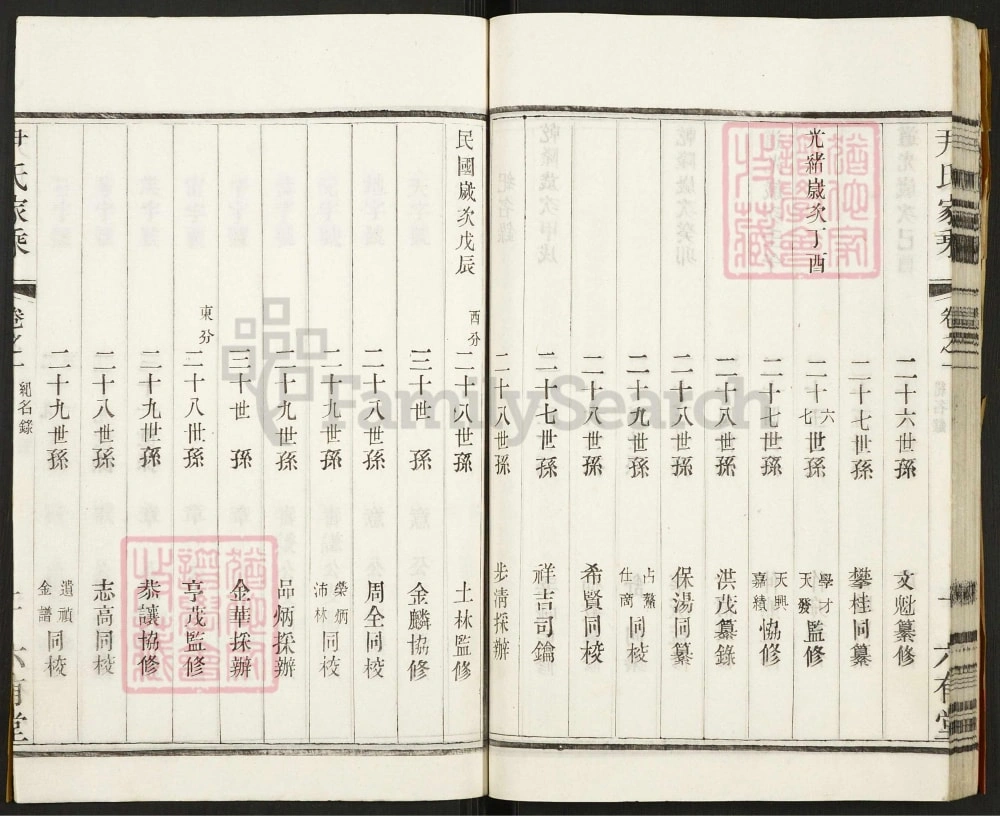 尹氏家乘
卷之一
六有堂
光緒歲次丁酉
二十六世孫 文魁纂修
二十七世孫 攀桂同纂
二十六七世孫 學才天發監修
二十七世孫 天興嘉績協修
二十八世孫 洪茂纂錄
二十八世孫 保湯同纂
二十九世孫 占鰲仕商同校
二十八世孫 希賢同校
二十七世孫 祥吉司鑰
二十八世孫 步清採辦
民國歲次戊辰
西分
二十八世孫 土林監修
三十世孫 金麟協修
二十八世孫 周全同校
二十九世孫 榮炳沛林同校
二十九世孫 品炳採辦
三十世孫 金華採辦
東分
二十八世孫 亨茂監修
二十九世孫 恭讓協修
二十八世孫 志高同校
二十九世孫 遺禎金譜同校
尹氏家乘
卷之一
紀名錄
六有堂
FamilySearch